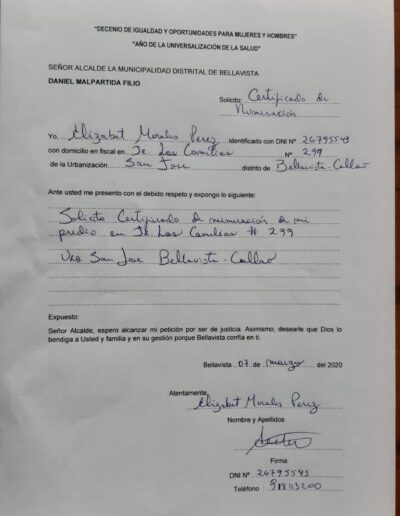 "DECENIO DE IGUALDAD Y OPORTUNIDADES PARA MUJERES Y HOMBRES"
"AÑO DE LA UNIVERSALIZACIÓN DE LA SALUD"
SEÑOR ALCALDE LA MUNICIPALIDAD DISTRITAL DE BELLAVISTA
DANIEL MALPARTIDA FILIO
Solicito: Certificado de
Numeración
Yo, Elizabet Morales Perez identificado con DNI Nº 26795549
con domicilio en fiscal en Jr. Las Camelias Nº 299
de la Urbanización San Jose distrito de Bellavista-Callao
Ante usted me presento con el debido respeto y expongo lo siguiente:
Solicito Certificado de numeración de mi
predio en Jr Las Camelias # 299
San Jose Bellavista-Callao
Expuesto:
Señor Alcalde, espero alcanzar mi petición por ser de justicia. Asimismo, desearle que Dios lo
bendiga a Usted y familia y en su gestión porque Bellavista confía en ti.
Bellavista 07 de marzo del 2020
Atentamente,
Elizabet Morales Perez
Nombre y Apellidos
Firma
DNI Nº 26795549
Teléfono